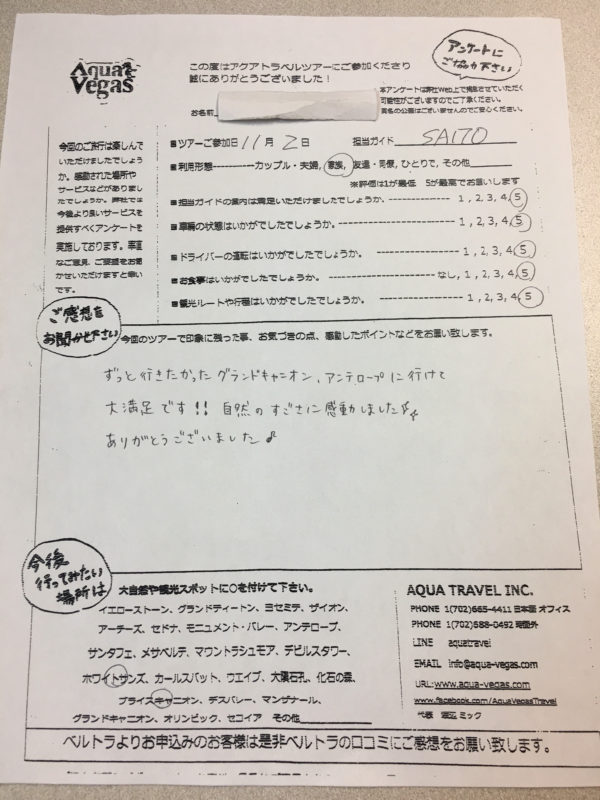 Aqua Vegas
この度はアクアトラベルツアーにご参加くださり
誠にありがとうございました！
アンケートに
ご協力下さい
本アンケートは弊社Web上で掲載させていただく
可能性がございますのでご了承ください。
実名の公開はございませんのでご安心ください。
お名前
今回のご旅行は楽しんで
いただけましたでしょう
か。感動された場所や
サービスなどがありまし
たでしょうか。弊社では
今後より良いサービスを
提供すべくアンケートを
実施しております。率直
なご意見、ご要望をお聞
かせいただけますと幸い
です。
■ツアーご参加日 11月 2日 担当ガイド SAITO
■利用形態-----------カップル・夫婦, 家族, 友達・同僚, ひとりで, その他
※評価は1が最低 5が最高でお願いします
■担当ガイドの案内は満足いただけましたでしょうか。---------------- 1, 2, 3, 4, 5
■車輌の状態はいかがでしたでしょうか。---------------- 1, 2, 3, 4, 5
■ドライバーの運転はいかがでしたでしょうか。---------------- 1, 2, 3, 4, 5
■お食事はいかがでしたでしょうか。---------------- なし, 1, 2, 3, 4, 5
■観光ルートや行程はいかがでしたでしょうか。---------------- 1, 2, 3, 4, 5
ご感想を
お聞かせ下さい
今回のツアーで印象に残った事、お気づきの点、感動したポイントなどをお願い致します。
ずっと行きたかったグランドキャニオン、アンテロープに行けて
大満足です!! 自然のすごさに感動しました
ありがとうございました♪
今後
行ってみたい
場所は
大自然や観光スポットに○を付けて下さい。
イエローストーン、グランドティートン、ヨセミテ、ザイオン、
アーチーズ、セドナ、モニュメント・バレー、アンテロープ、
サンタフェ、メサベルデ、マウントラシュモア、デビルスタワー、
ホワイトサンズ、カールスバット、ウエイブ、大隕石孔、化石の森、
ブライスキャニオン、デスバレー、マンザナール、
グランドキャニオン、オリンピック、セコイア その他
AQUA TRAVEL INC.
PHONE 1(702)665-4411 日本語 オフィス
PHONE 1(702)588-0492 時間外
LINE aquatravel
EMAIL info@aqua-vegas.com
URL:www.aqua-vegas.com
www.facebook.com/AquaVegasTravel
代表 渡辺 ミック
ベルトラよりお申込みのお客様は是非ベルトラの口コミにご感想をお願い致します。